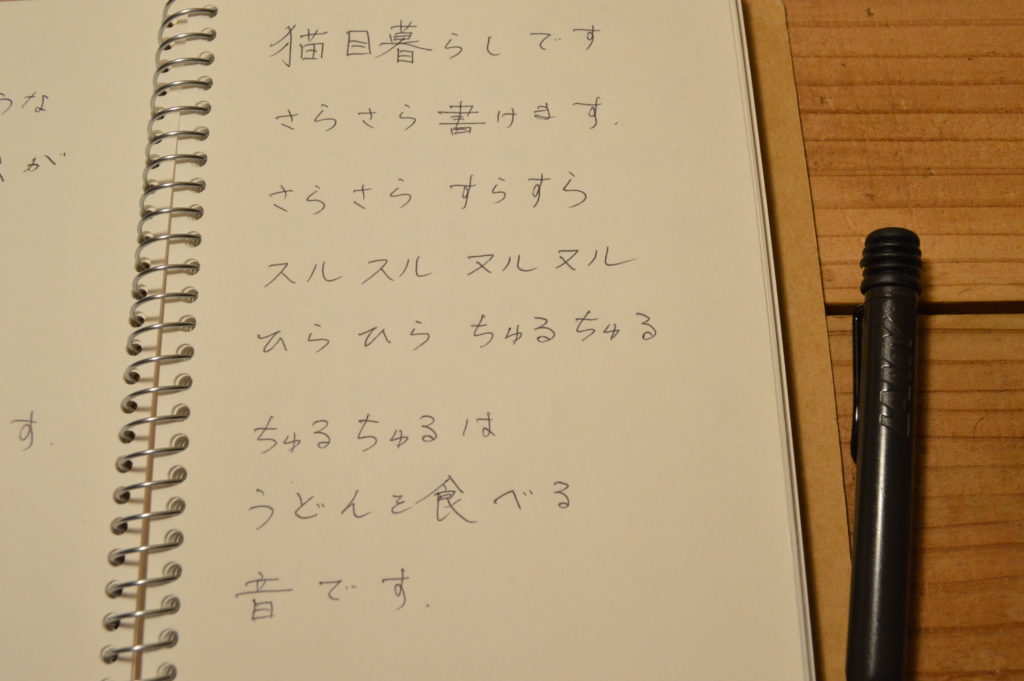 うな
が
す.
猫目暮らしです
さらさら書けます.
さらさら すらすら
スルスル ヌルヌル
ひらひら ちゅるちゅる
ちゅるちゅるは
うどんを食べる
音です.
LAMY